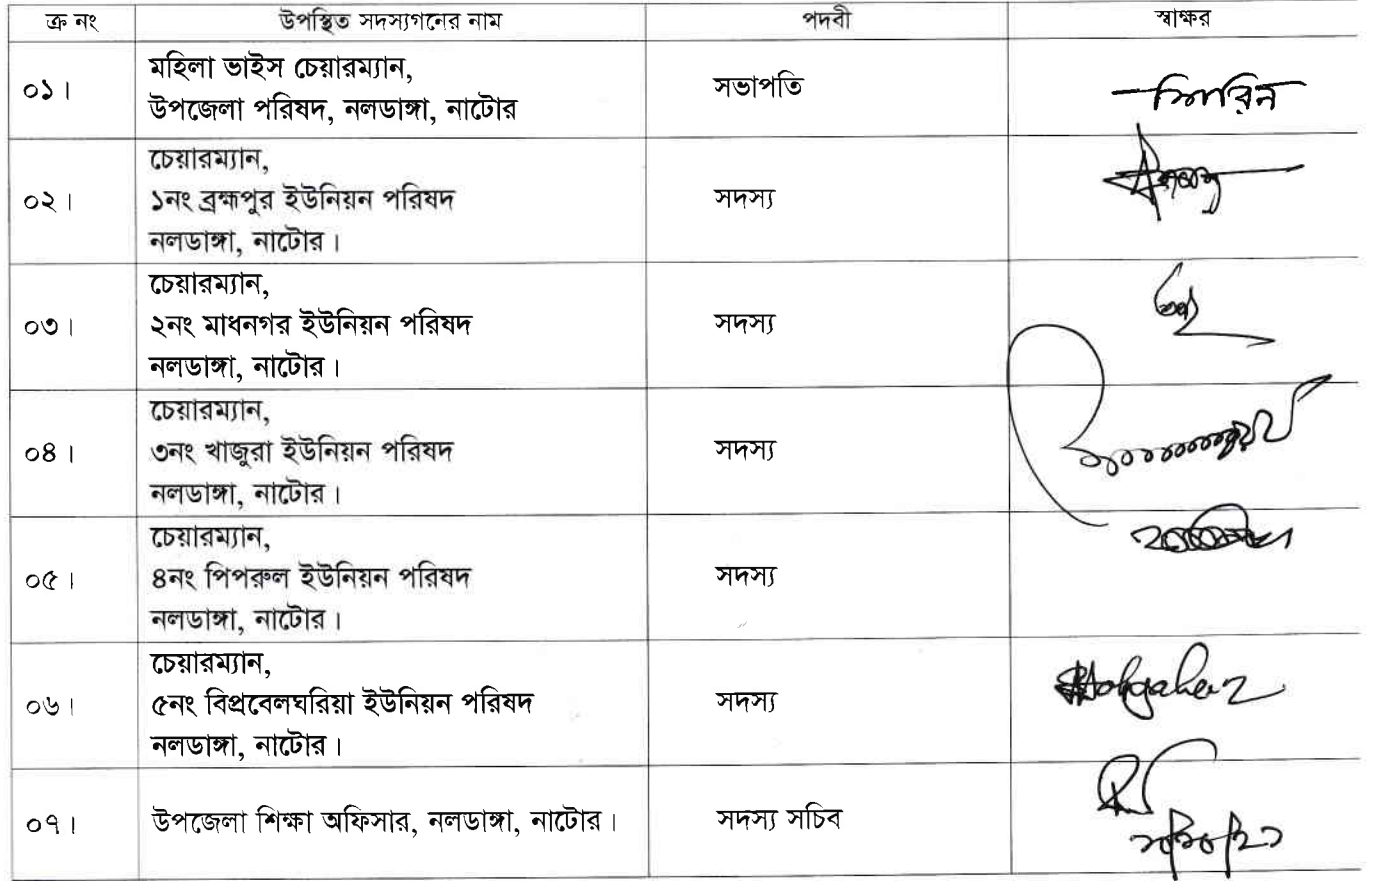 ক্র নং উপস্থিত সদস্যগনের নাম পদবী স্বাক্ষর
০১। মহিলা ভাইস চেয়ারম্যান,
উপজেলা পরিষদ, নলডাঙ্গা, নাটোর সভাপতি শিরিন
০২। চেয়ারম্যান,
১নং ব্রহ্মপুর ইউনিয়ন পরিষদ
নলডাঙ্গা, নাটোর। সদস্য
০৩। চেয়ারম্যান,
২নং মাধনগর ইউনিয়ন পরিষদ
নলডাঙ্গা, নাটোর। সদস্য
০৪। চেয়ারম্যান,
৩নং খাজুরা ইউনিয়ন পরিষদ
নলডাঙ্গা, নাটোর। সদস্য
০৫। চেয়ারম্যান,
৪নং পিপরুল ইউনিয়ন পরিষদ
নলডাঙ্গা, নাটোর। সদস্য
০৬। চেয়ারম্যান,
৫নং বিপ্রবেলঘরিয়া ইউনিয়ন পরিষদ
নলডাঙ্গা, নাটোর। সদস্য
০৭। উপজেলা শিক্ষা অফিসার, নলডাঙ্গা, নাটোর। সদস্য সচিব